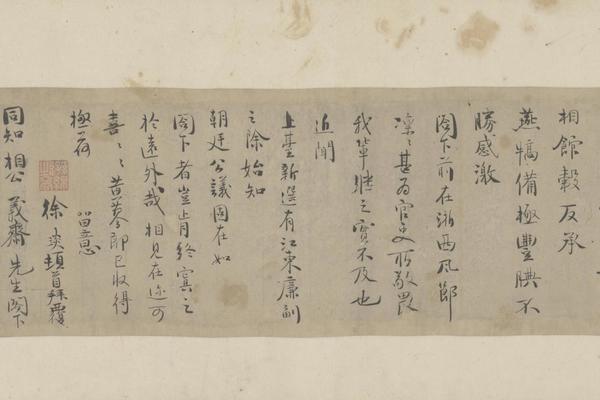 相館穀反承
燕犒備極豐腆不
勝感激
閤下前在浙西風節
凜凜甚為官吏所敬畏
我輩継之實不及也
近聞
上臺新選有江東廉副
之除始知
朝廷公議固在如
閤下者豈肯終寘之
於遠外哉相見在迩可
喜〻黄蔘即已收得
極荷
留意
徐奭頓首拜覆
同知相公義齋先生閤下